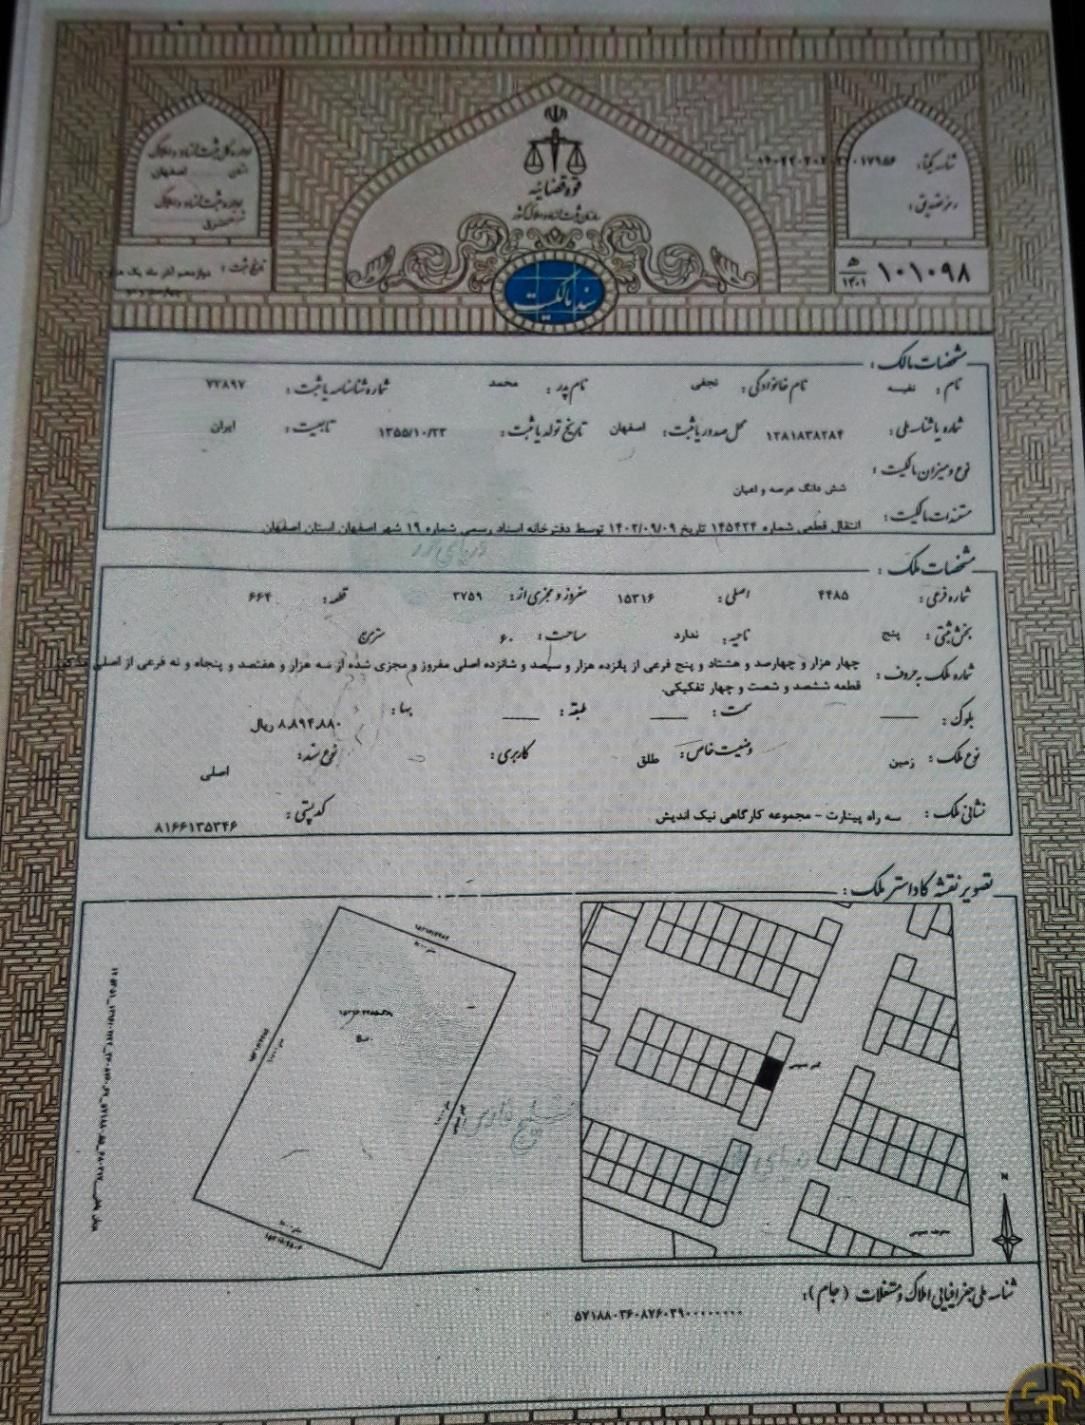 قوه قضائیه
سازمان ثبت اسناد و املاک کشور
سند مالکیت
اداره کل ثبت اسناد و املاک
استان اصفهان
اداره ثبت اسناد و املاک
تاریخ ثبت : دوازدهم آذر ماه یک
شناسه یکتا:
رمز تصدیق :
۱۰۱۰۹۸ ۵/۱۴۰۱
مشخصات مالک :
نام : نفیسه نام خانوادگی : نجفی نام پدر : محمد شماره شناسنامه یا ثبت : ۷۲۸۹۷
شماره یا شناسه ملی : ۱۲۸۱۸۳۸۲۸۴ محل صدور یا ثبت : اصفهان تاریخ تولد یا ثبت : ۱۳۵۵/۱۰/۲۳ تابعیت : ایران
نوع و میزان مالکیت :
شش دانگ عرصه و اعیان
مستندات مالکیت :
انتقال قطعی شماره ۱۴۵۴۲۴ تاریخ ۱۴۰۲/۰۹/۰۹ توسط دفترخانه اسناد رسمی شماره ۱۹ شهر اصفهان استان اصفهان
مشخصات ملک :
شماره فرعی : ۴۴۸۵ اصلی : ۱۵۳۱۶ مفروز و مجزی از : ۳۷۵۹ قطعه : ۶۶۴
بخش ثبتی : پنج ناحیه : ندارد مساحت : ۶۰ مترمربع
شماره ملک به حروف : چهار هزار و چهارصد و هشتاد و پنج فرعی از پانزده هزار و سیصد و شانزده اصلی مفروز و مجزی شده از سه هزار و هفتصد و پنجاه و نه فرعی از اصلی
قطعه ششصد و شصت و چهار تفکیکی.
بلوک : سمت : طبقه : بها : ۸،۸۹۴،۸۸۰ ریال
نوع ملک : زمین وضعیت خاص : طلق کاربری : نوع سند : اصلی
نشانی ملک : سه راه پینارت - مجموعه کارگاهی نیک اندیش کد پستی : ۸۱۶۶۱۳۵۳۴۶
تصویر نقشه کاداستر ملک :
N
شناسه ملی جغرافیایی املاک و مستغلات (جام) :